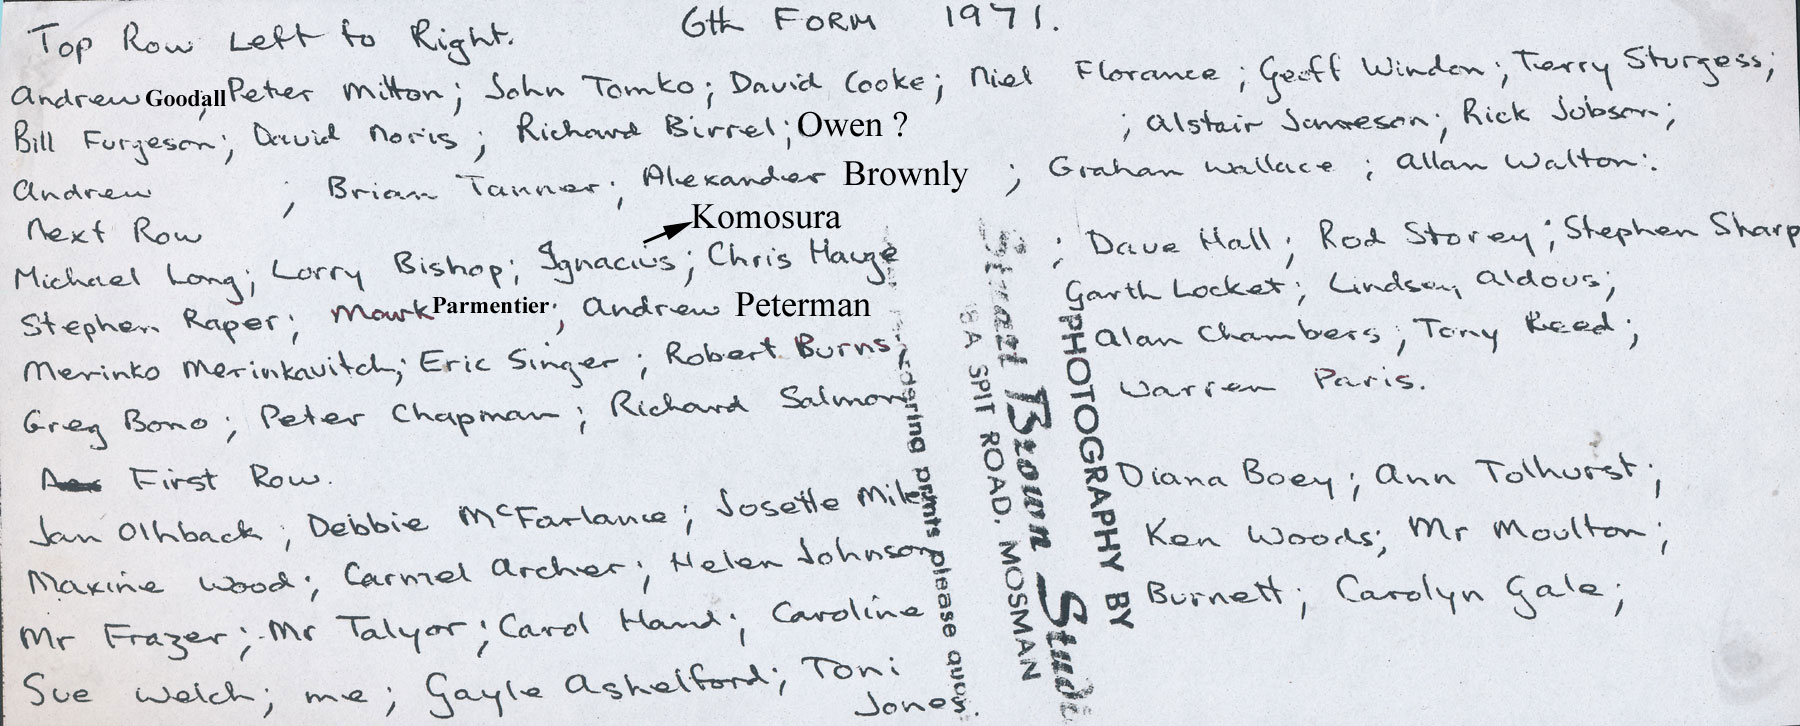 6th FORM 1971.
Top Row Left to Right.
Andrew Goodall; Peter Mitton; John Tomko; David Cooke; Niel Florance; Geoff Windon; Terry Sturgess;
Bill Furgeson; David Noris; Richard Birrel; Owen ? ; Alstair Jameson; Rick Jobson;
Andrew ; Brian Tanner; Alexander Brownly ; Graham Wallace; Allan Walton:.
Next Row
Komosura
Michael Long; Lorry Bishop; Ignacius; Chris Hauge ; Dave Hall; Rod Storey; Stephen Sharp
Stephen Raper; Mark Parmentier; Andrew Peterman Garth Locket; Lindsay Aldous;
Merinko Merinkavitch; Eric Singer; Robert Burns; Alan Chambers; Tony Reed;
Greg Bono; Peter Chapman; Richard Salmon Warren Paris.
First Row.
Jan Olhback; Debbie McFarlance; Josette Mile Diana Boey; Ann Tolhurst;
Maxine Wood; Carmel Archer; Helen Johnson Ken Woods; Mr Moulton;
Mr Frazer; Mr Talyor; Carol Hand; Caroline Burnett; Carolyn Gale;
Sue Welch; me; Gayle Ashelford; Toni
Jones.
prints please quote
8A SPIT ROAD. MOSMAN
Brown Studi
PHOTOGRAPHY BY